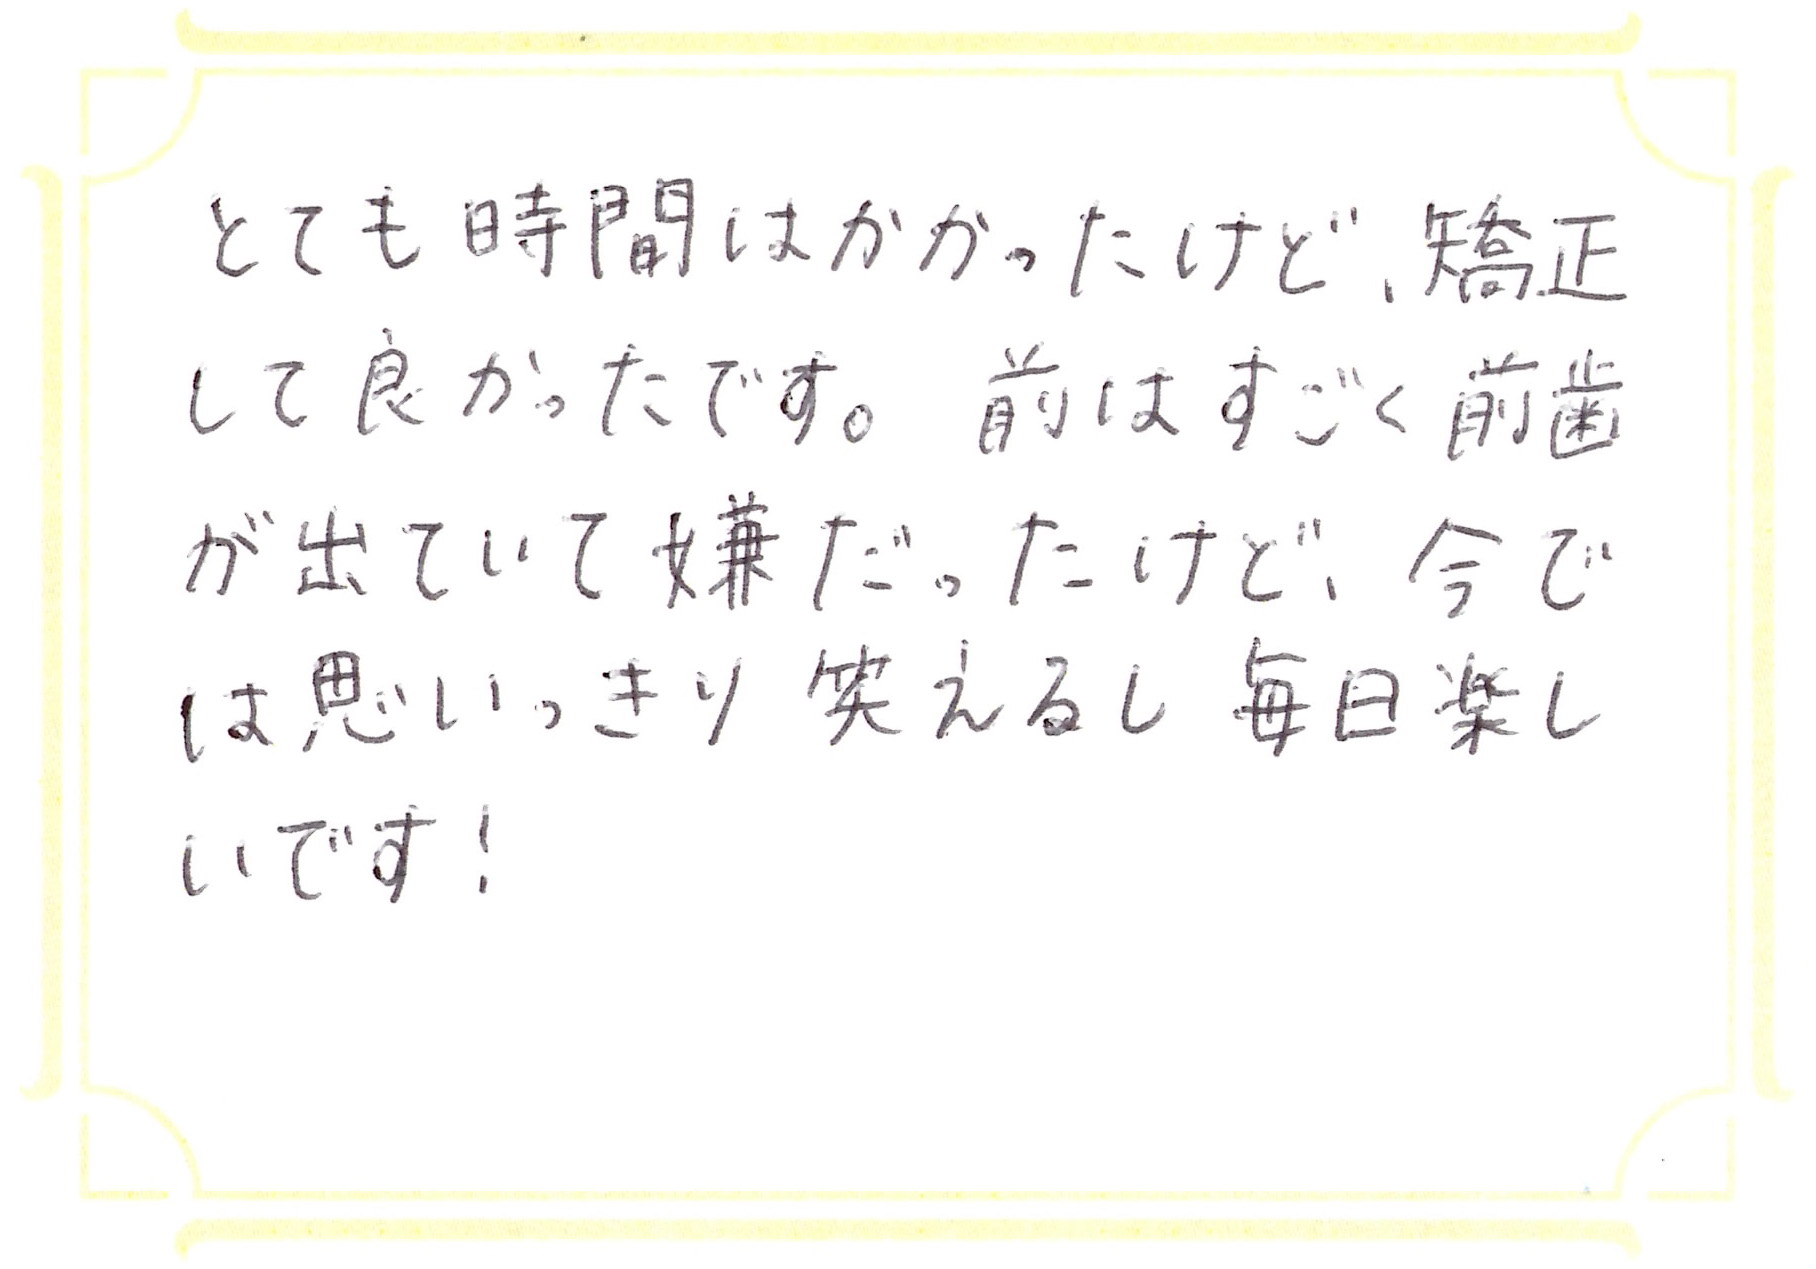 とても時間はかかったけど、矯正
して良かったです。前はすごく前歯
が出ていて嫌だったけど、今で
は思いっきり笑えるし毎日楽し
いです!